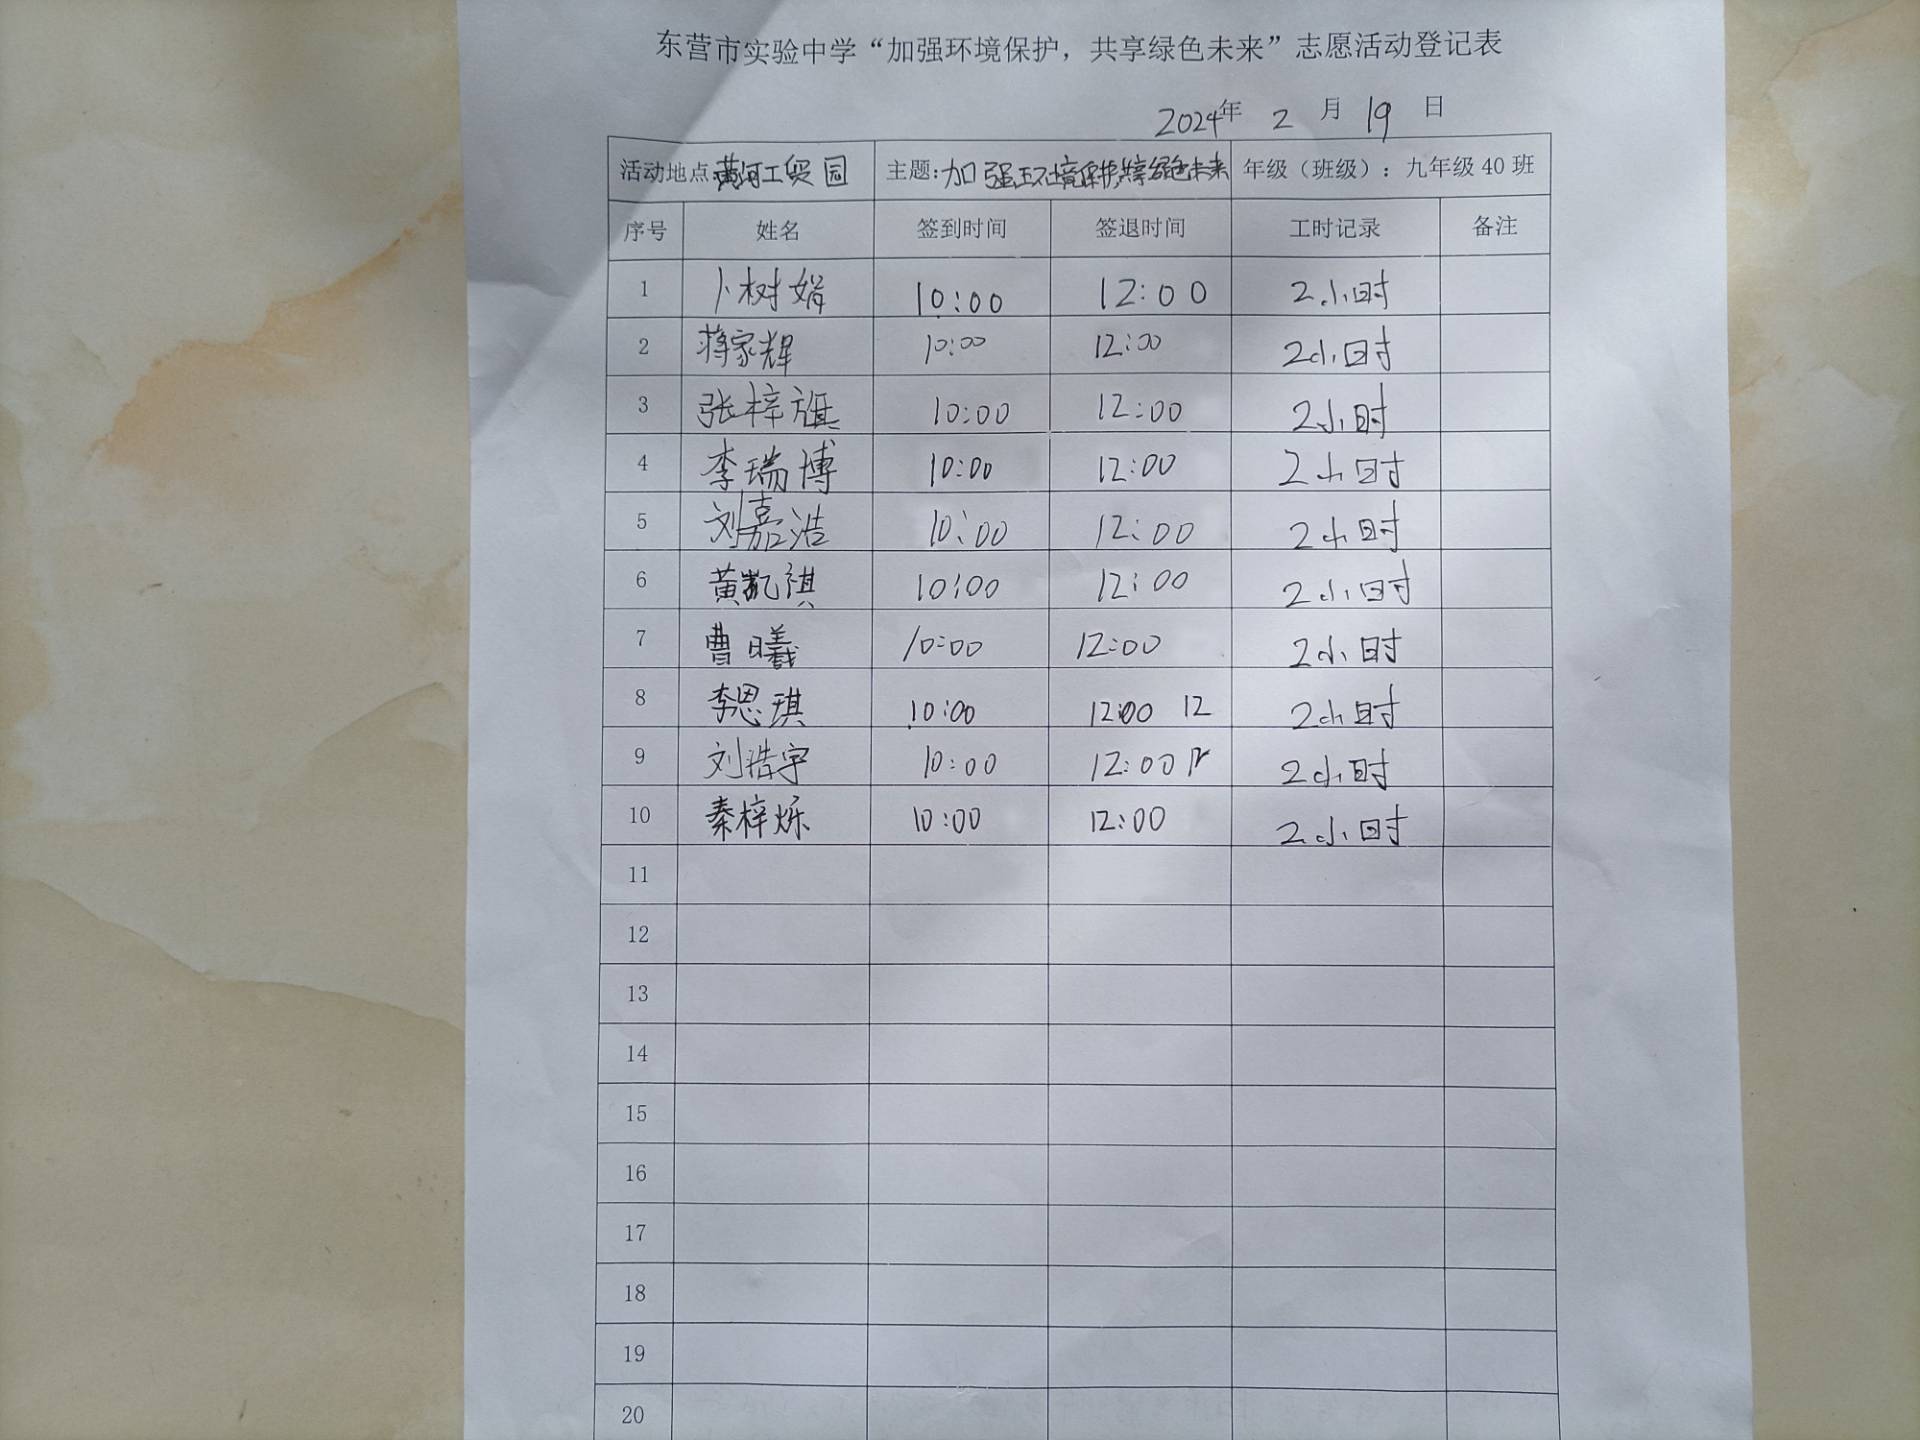 东营市实验中学“加强环境保护，共享绿色未来”志愿活动登记表
2024年 2 月 19 日
活动地点 黄河工贸园 主题:加强环境保护共享绿色未来 年级（班级）：九年级 40 班
序号 姓名 签到时间 签退时间 工时记录 备注
1 卜树娟 10:00 12:00 2小时
2 蒋家辉 10:00 12:00 2小时
3 张梓旗 10:00 12:00 2小时
4 李瑞博 10:00 12:00 2小时
5 刘嘉浩 10:00 12:00 2小时
6 黄凯祺 10:00 12:00 2小时
7 曹曦 10:00 12:00 2小时
8 李恩琪 10:00 12:00 12 2小时
9 刘浩宇 10:00 12:00 2小时
10 秦梓烁 10:00 12:00 2小时
11
12
13
14
15
16
17
18
19
20